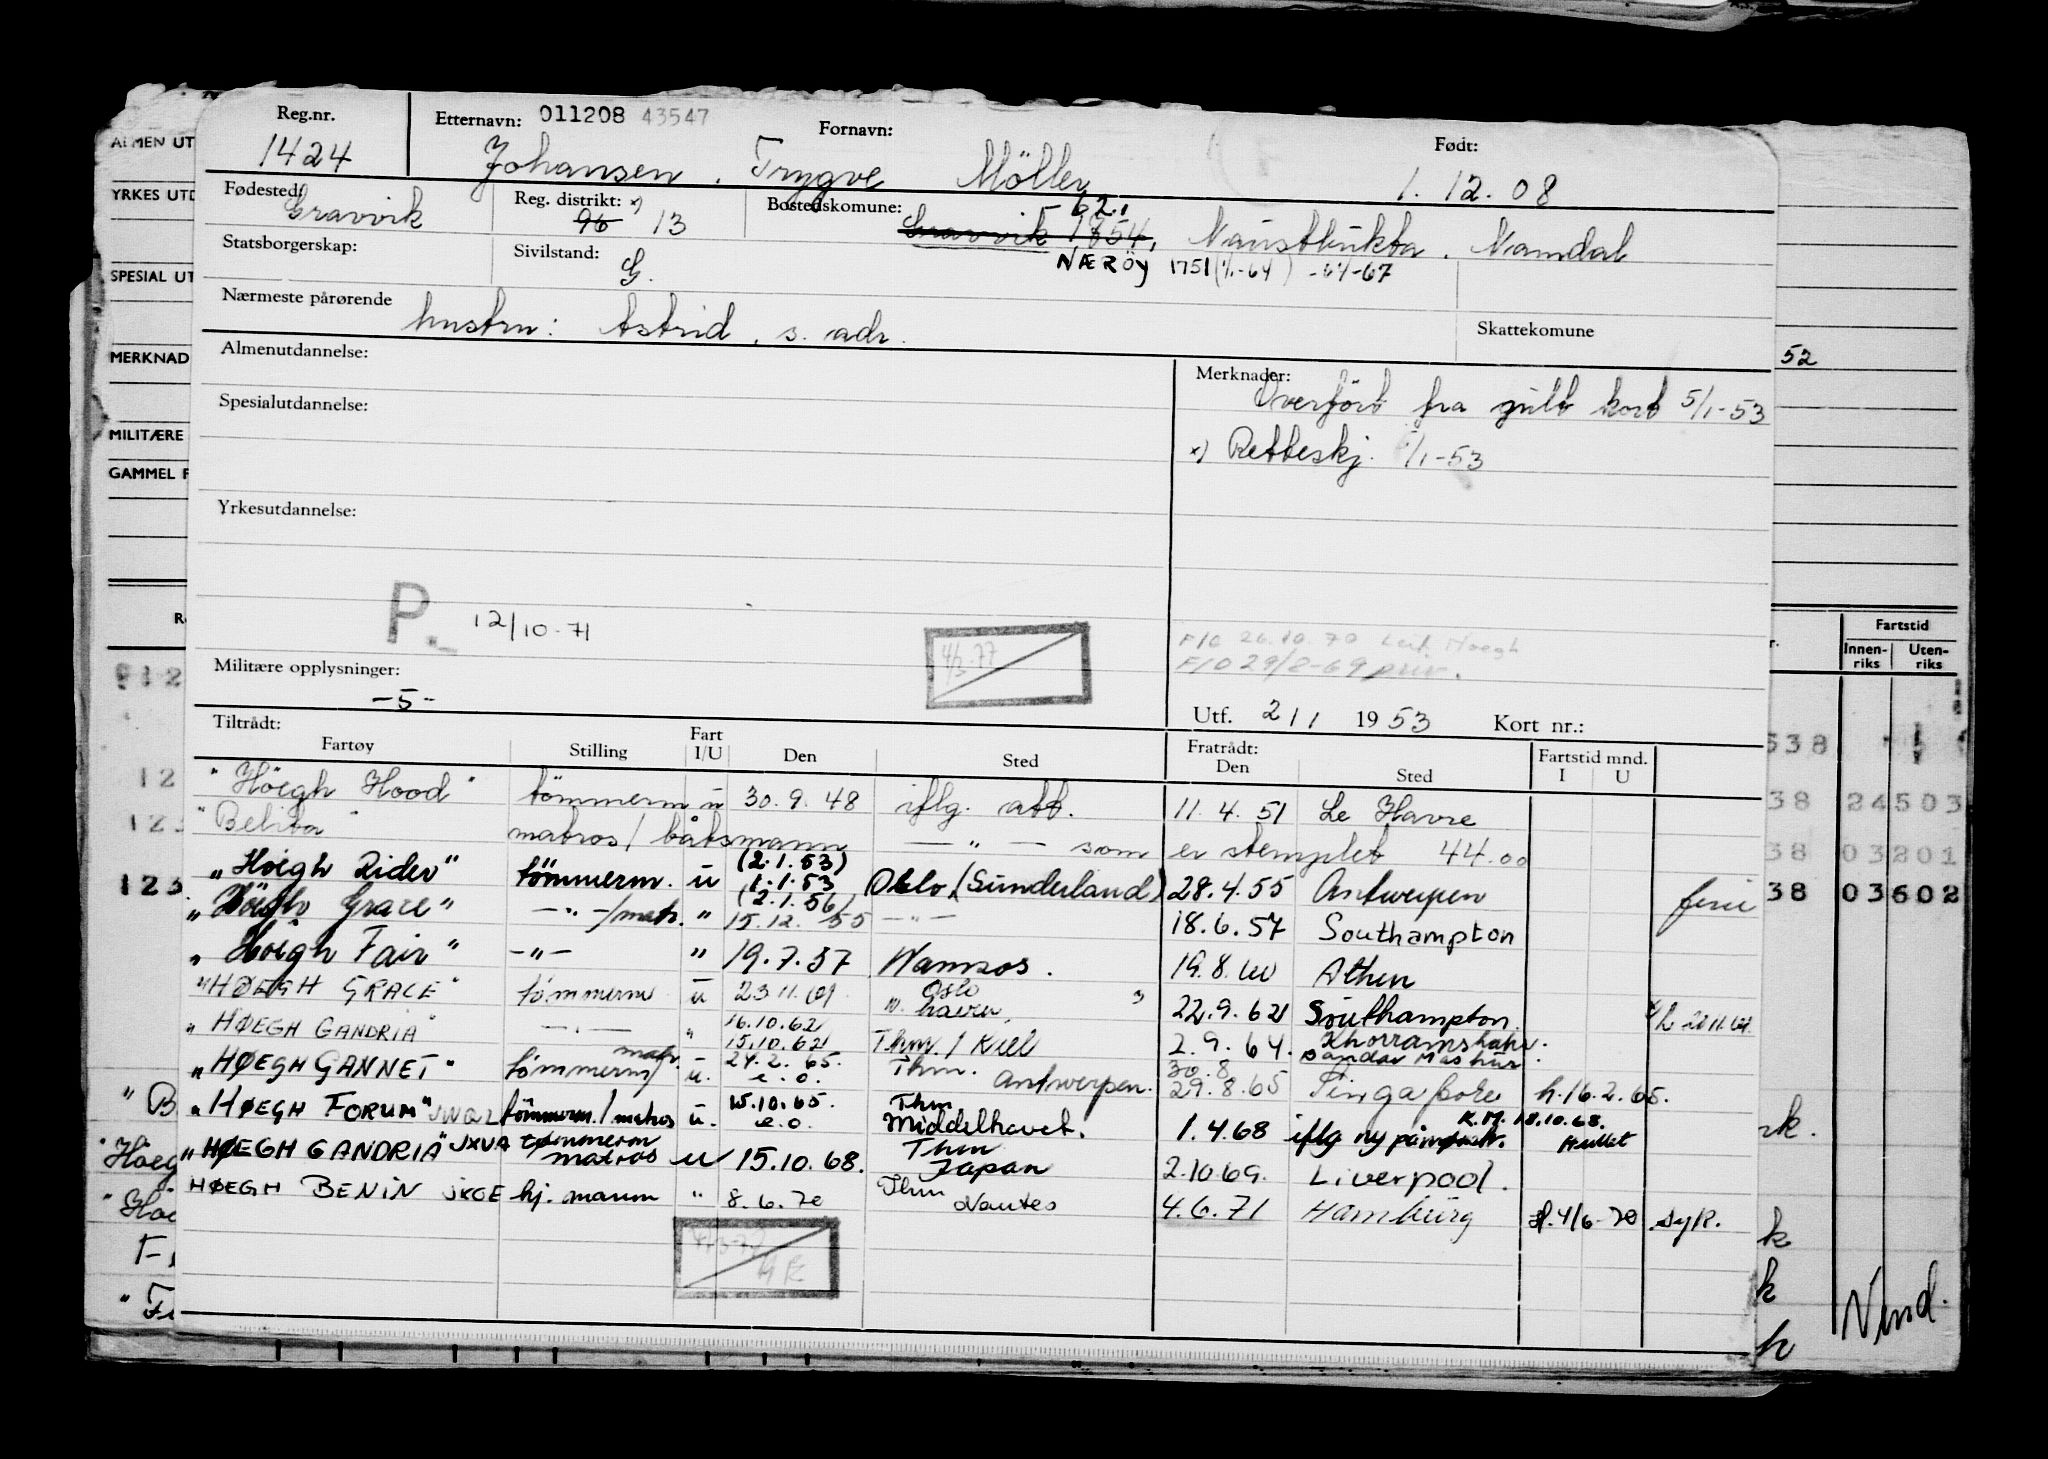 Reg.nr. 1424
Etternavn: 011208 43547 Fornavn: Født:
Johansen, Trygve Möller 1.12.08
Fødested: Gravvik Reg. distrikt: x) 96 13 Bostedskomune: Gravvik 1854, 62.1 Naustbukta. Namdal
Statsborgerskap: Sivilstand: G. NÆRÖY 1751 (1/1-64) -64-67
Nærmeste pårørende hustru: Astrid, s. adr. Skattekomune
Almenutdannelse: Merknader:
Overfört fra gult kort 5/1-53
Spesialutdannelse:
x) Retteskj. /1-53
Yrkesutdannelse:
P. 12/10-71
4/3-77
F/O 26.10.70 Leif Hoegh
F/O 29/8-69 priv.
Militære opplysninger:
-5-
Utf. 2/1 1953 Kort nr.:
Tiltrådt: Fratrådt:
Fartøy Stilling Fart I/U Den Sted Den Sted Fartstid mnd. I U
"Höegh Hood" tömmerm u 30.9.48 iflg. att. 11.4.51 Le Havre
"Belita" matros/båtsmann —"— som er stemplet 44.00
"Höegh Rider" tömmerm. u (2.1.53) 1.1.53 Oslo (Sunderland) 28.4.55 Antwerpen
"Höegh Grace" —"—/matr. " (2.1.56) 15.12.55 —"— 18.6.57 Southampton ferie
"Höegh Fair" —"— " 19.7.57 Namsos. 19.8.60 Athen
"HØEGH GRACE" tømmerm u 23.11.61 Oslo havn 22.9.62 Southampton.
"HØEGH GANDRIA" —"— " 16.10.62 15.10.62 Thm./Kiel 2.9.64. Khorramshahr. Bandar Mashur
"HØEGH GANNET" tømmerm/matr. u. 24.2.65. e.o. Thm. Antwerpen. 30.8 29.8.65 Singapore h.16.2.65.
"HØEGH FORUM" JWQL tömmerm./matros u. 15.10.65. e.o. Thm Middelhavet. 1.4.68 iflg ny påmønstr. K.M. 18.10.68.
"HØEGH GANDRIA" JXVA tømmerm matros u 15.10.68. Thm Japan 2.10.69. Liverpool.
HØEGH BENIN JKOE hj. mann " 8.6.70 Thm Nantes 4.6.71 Hamburg 4/6-70 syk.
ALMEN UT
YRKES UTD
SPESIAL UT
MERKNAD
MILITÆRE
GAMMEL F
52
Fartstid
Innenriks Utenriks
538
38 24503
38 03201
38 03602
12
123
123